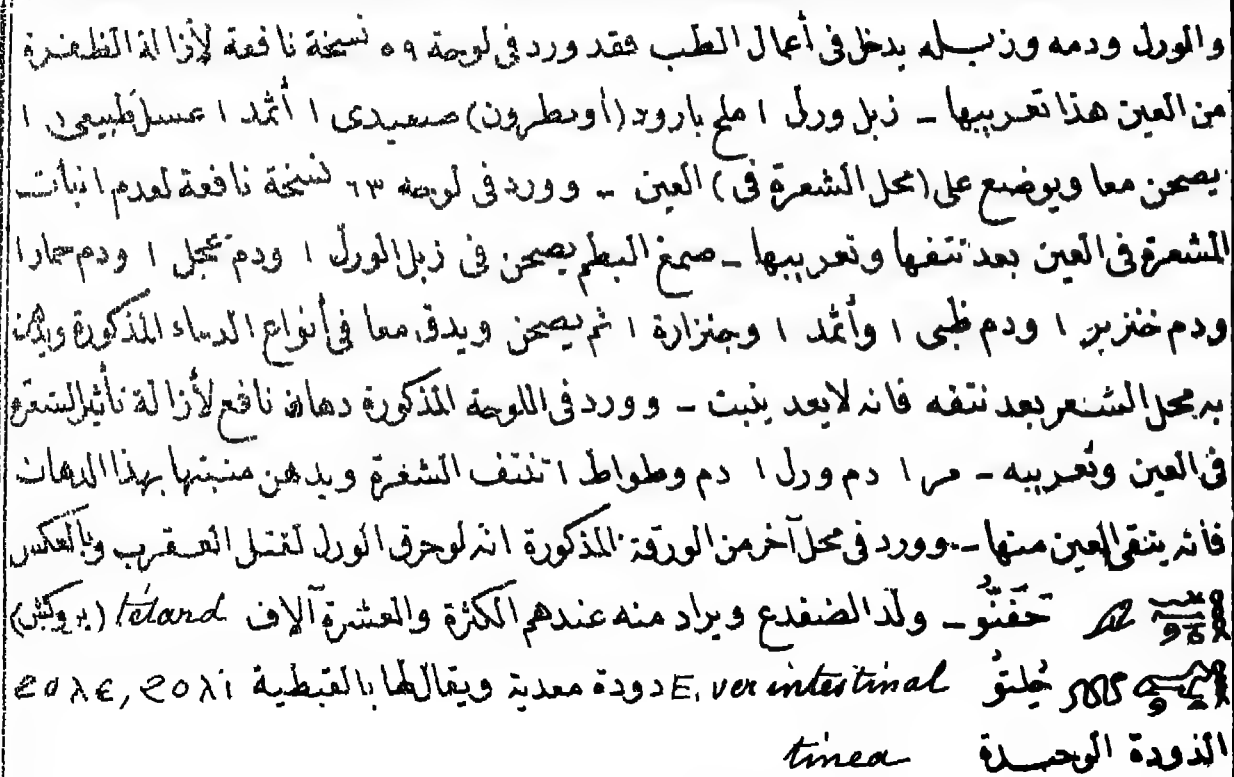 والورل ودمه وزبـــله يدخل فى أعمال الطب فقد ورد فى لوحة ٥٩ نسخة نافعة لأزالة الظفـرة
من العين هذا تعريبها ـ زبل ورل ١ ملح بارود (أو نطرون) صعيدى ١ أثمد ١ عسل طبيعى ١
يصحن معا ويوضع على (محل الشعرة فى) العين ـ وورد فى لوحة ٦٣ نسخة نافعة لعدم انبات
الشعرة فى العين بعد نتفها وتعريبها ـ صمغ البطم يصحن فى زبل الورل ١ ودم عجل ١ ودم حمار ١
ودم خنزير ١ ودم ظبى ١ وأثمد ١ وجنزارة ١ ثم يصحن ويدق معا فى أنواع الدماء المذكورة ويدهن
به محل الشعر بعد نتفه فانه لا يعد ينبت ـ وورد فى اللوحة المذكورة دهان نافع لأزالة تأثير الشعرة
فى العين وتعريبه ـ مر ١ دم ورل ١ دم وطواط ١ تنتف الشعرة ويدهن منبتها بهذا الدهان
فانه ينتقى العين منها ـ وورد فى محل آخر من الورقة المذكورة انه لو حرق الورل لقتل العقرب وبالعكس
حَفَنُّو ـ ولد الضفدع ويراد منه عندهم الكثرة والعشرة آلاف tétard (بروكش)
خُلِتوُ E. ver intestinal دودة معدية ويقال لها بالقبطية ϩⲟⲗⲓ, ϩⲟⲗⲉ
الدودة الوحيـدة tinea